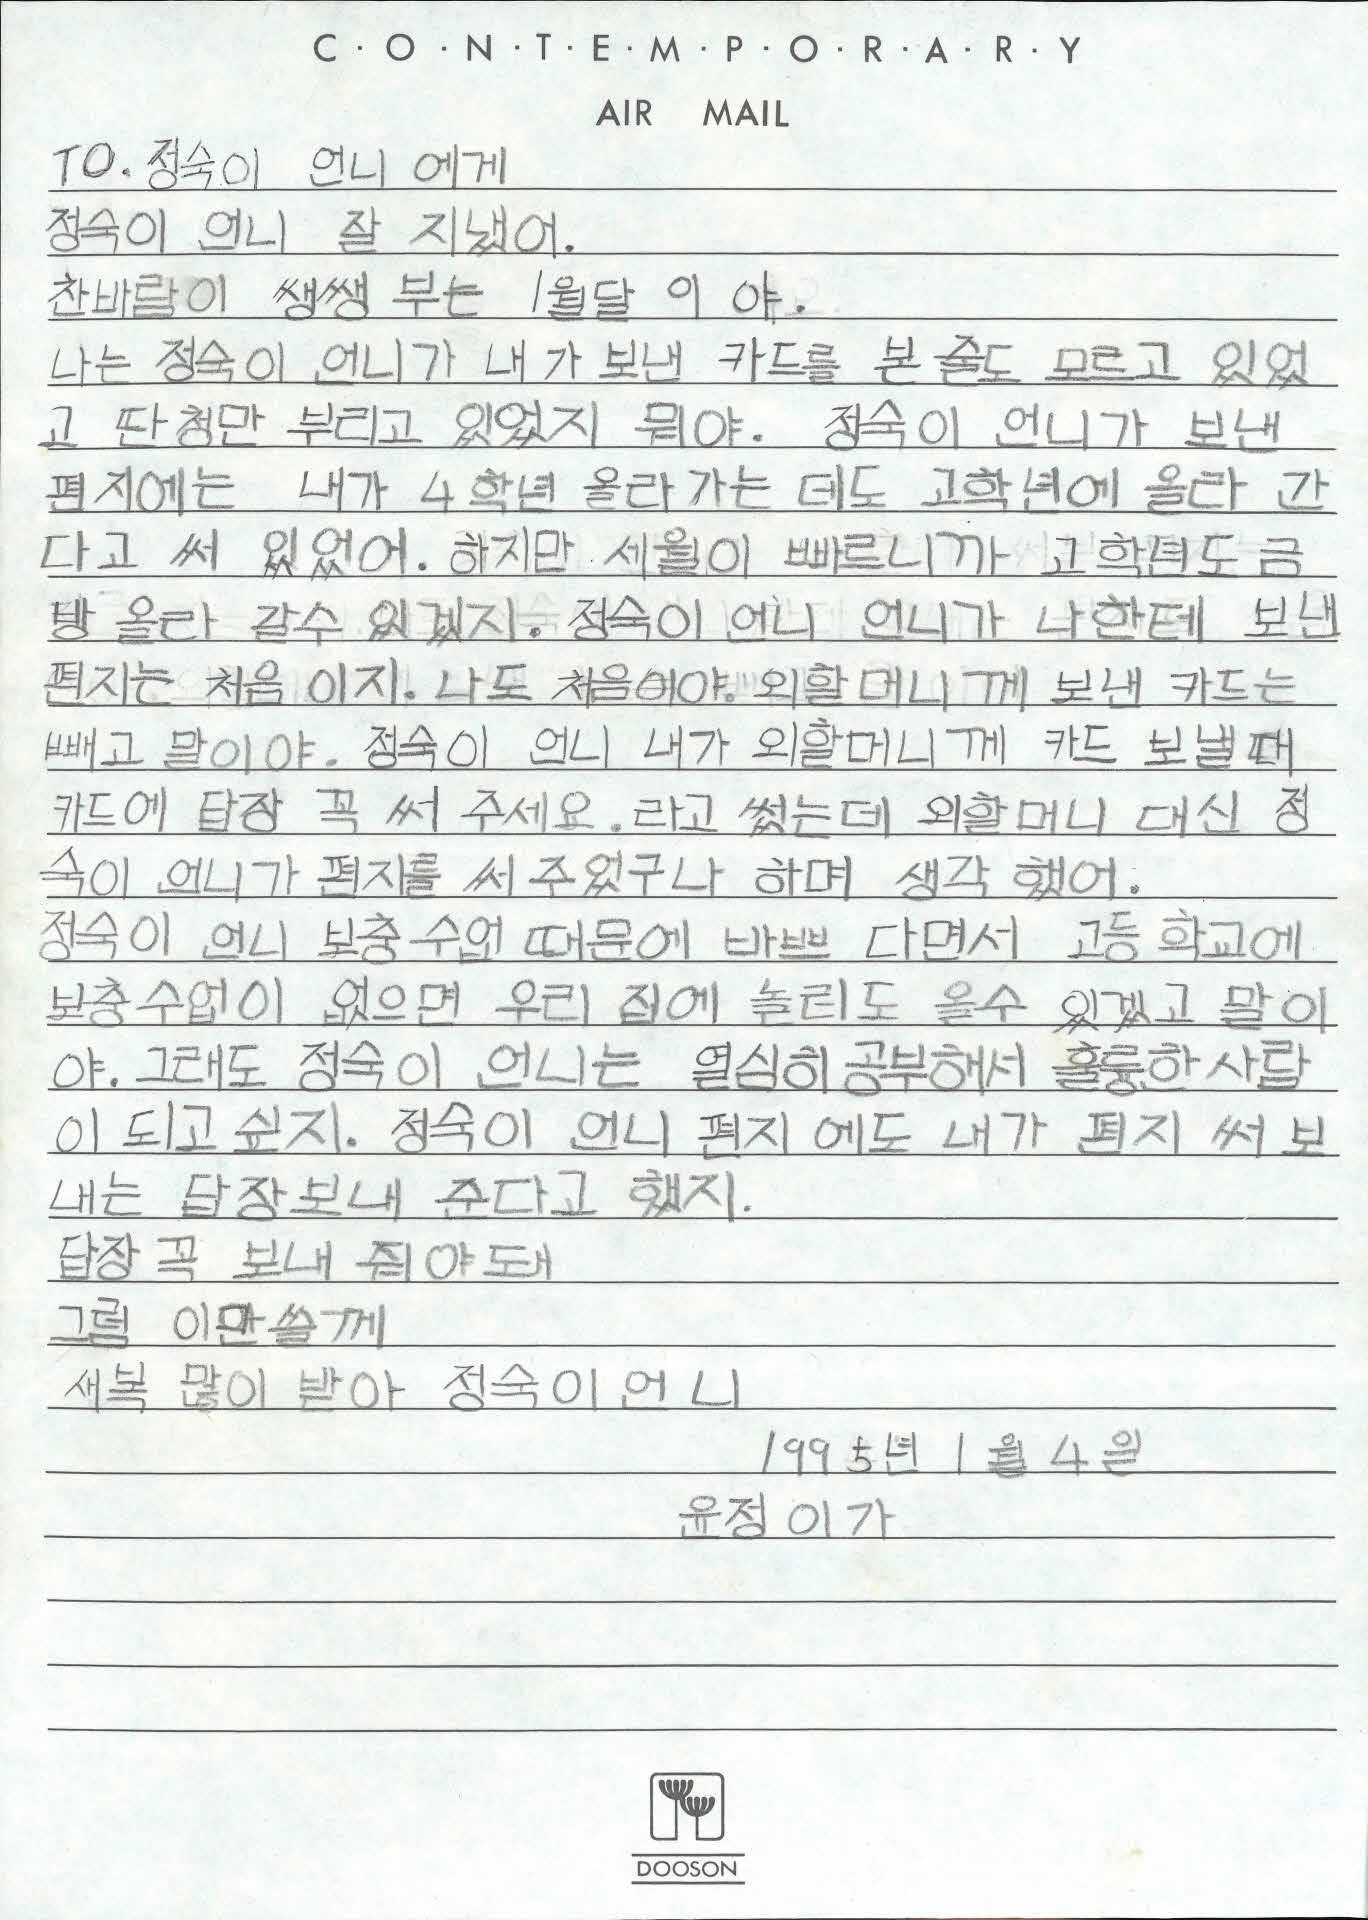 C·O·N·T·E·M·P·O·R·A·R·Y
AIR MAIL
TO. 정숙이 언니 에게
정숙이 언니 잘 지냈어.
찬바람이 쌩쌩 부는 1월달 이 야.
나는 정숙이 언니가 내가 보낸 카드를 본 줄도 모르고 있었
고 딴청만 부리고 있었지 뭐야. 정숙이 언니가 보낸
편지에는 내가 4학년 올라가는 데도 고학년에 올라 간
다고 써 있었어. 하지만 세월이 빠르니까 고학년도 금
방 올라 갈수 있겠지. 정숙이 언니 언니가 나한테 보낸
편지는 처음 이지. 나도 처음이야. 외할머니께 보낸 카드는
빼고 말이야. 정숙이 언니 내가 외할머니께 카드 보낼때
카드에 답장 꼭 써 주세요. 라고 썼는데 외할머니 대신 정
숙이 언니가 편지를 써 주었구나 하며 생각 했어.
정숙이 언니 보충수업 때문에 바쁘 다면서 고등 학교에
보충수업이 없으면 우리 집에 놀러도 올수 있겠고 말이
야. 그래도 정숙이 언니는 열심히 공부해서 훌륭한 사람
이 되고 싶지. 정숙이 언니 편지 에도 내가 편지 써 보
내는 답장보내 준다고 했지.
답장 꼭 보내 줘야돼
그럼 이만 쓸께
새복 많이 받아 정숙이 언니
1995년 1월 4일
윤정이가
DOOSON